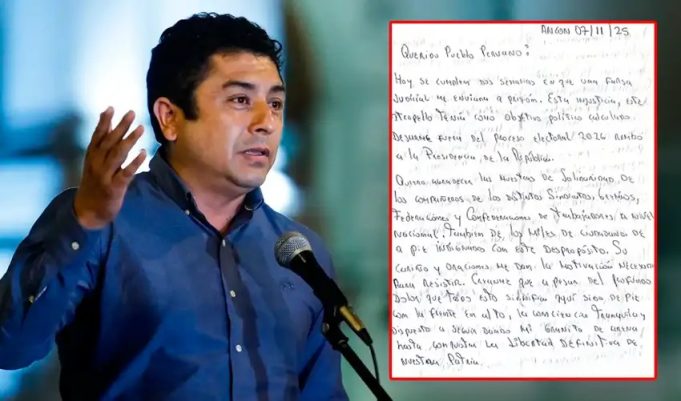 ANCON 07/11/25
QUERIDO PUEBLO PERUANO:
Hoy se cumplen dos semanas en que una farsa
Judicial me enviaron a prisión. Esta injusticia, este
atropello tenía como objetivo político calculado
fuera del proceso electoral 2026 rumbo
a la Presidencia de la República.
Quiero agradecer las muestras de solidaridad de
los compañeros de los distintos sindicatos, gremios,
Federaciones y Confederaciones de Trabajadores a nivel
nacional. También de los miles de ciudadanos de
a pie indignados con este despropósito. Su
cariño y oraciones me dan la motivación necesaria
para resistir. que a pesar del profundo
dolor que todo esto significa aquí sigo de pie
con la frente en alto, la conciencia tranquila y
dispuesto a seguir dando mi granito de arena
hasta conquistar la libertad definitiva de
nuestra Patria.